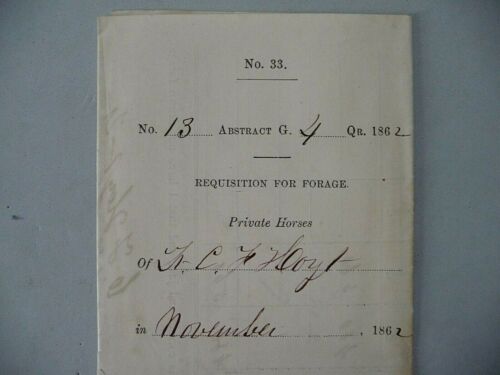 No. 33.
No. 13 Abstract G. 4 Qr. 1862
REQUISITION FOR FORAGE.
Private Horses
Of C. F Hoyt
in November, 1862